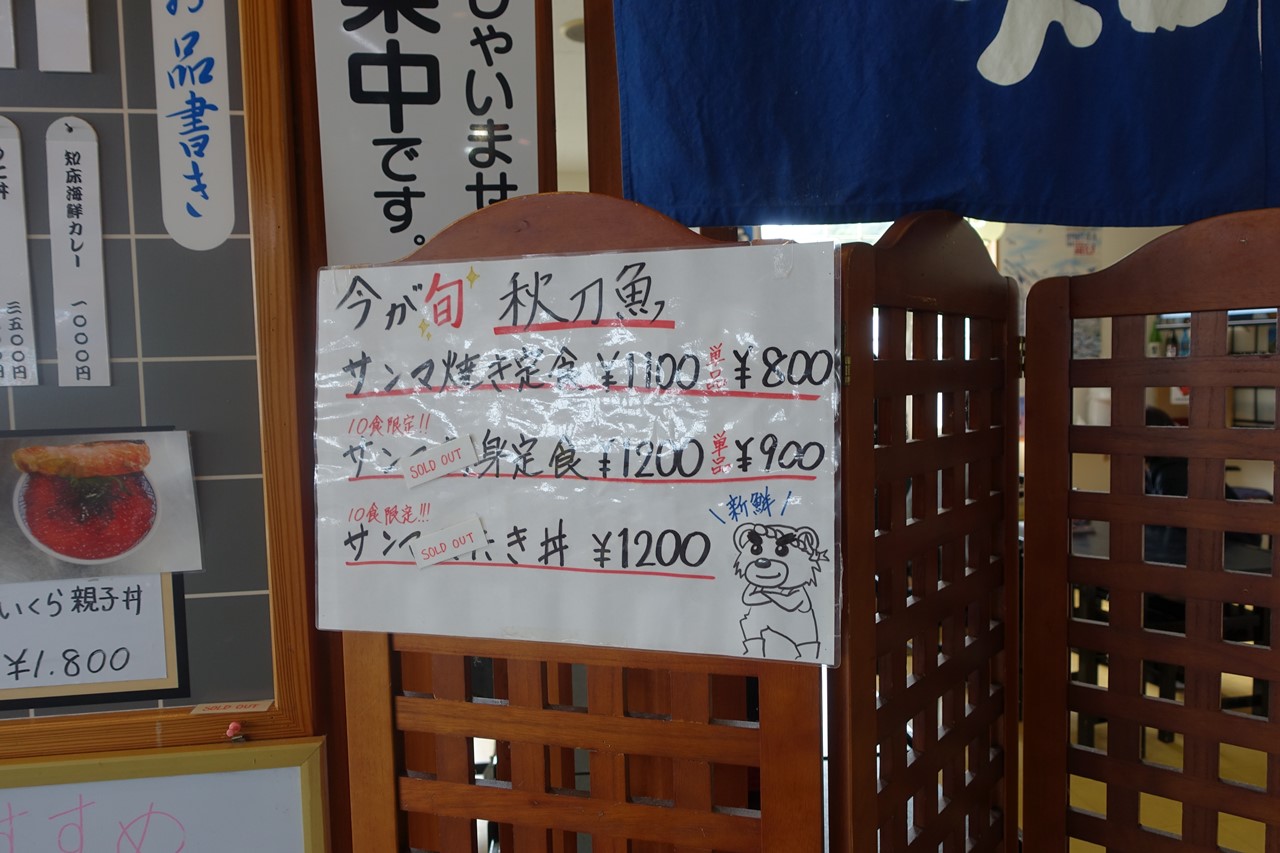 お品書き
知床海鮮カレー 一〇〇〇円
三五〇〇円
いくら親子丼
¥1.800
SOLD OUT
しゃいませ
集中です。
今が旬 秋刀魚
サンマ焼き定食 ¥1100 単品 ¥800
10食限定!!
サン SOLD OUT 身定食 ¥1200 単品 ¥900
10食限定!!!
サンマ SOLD OUT たき丼 ¥1200
\新鮮/
すすめ